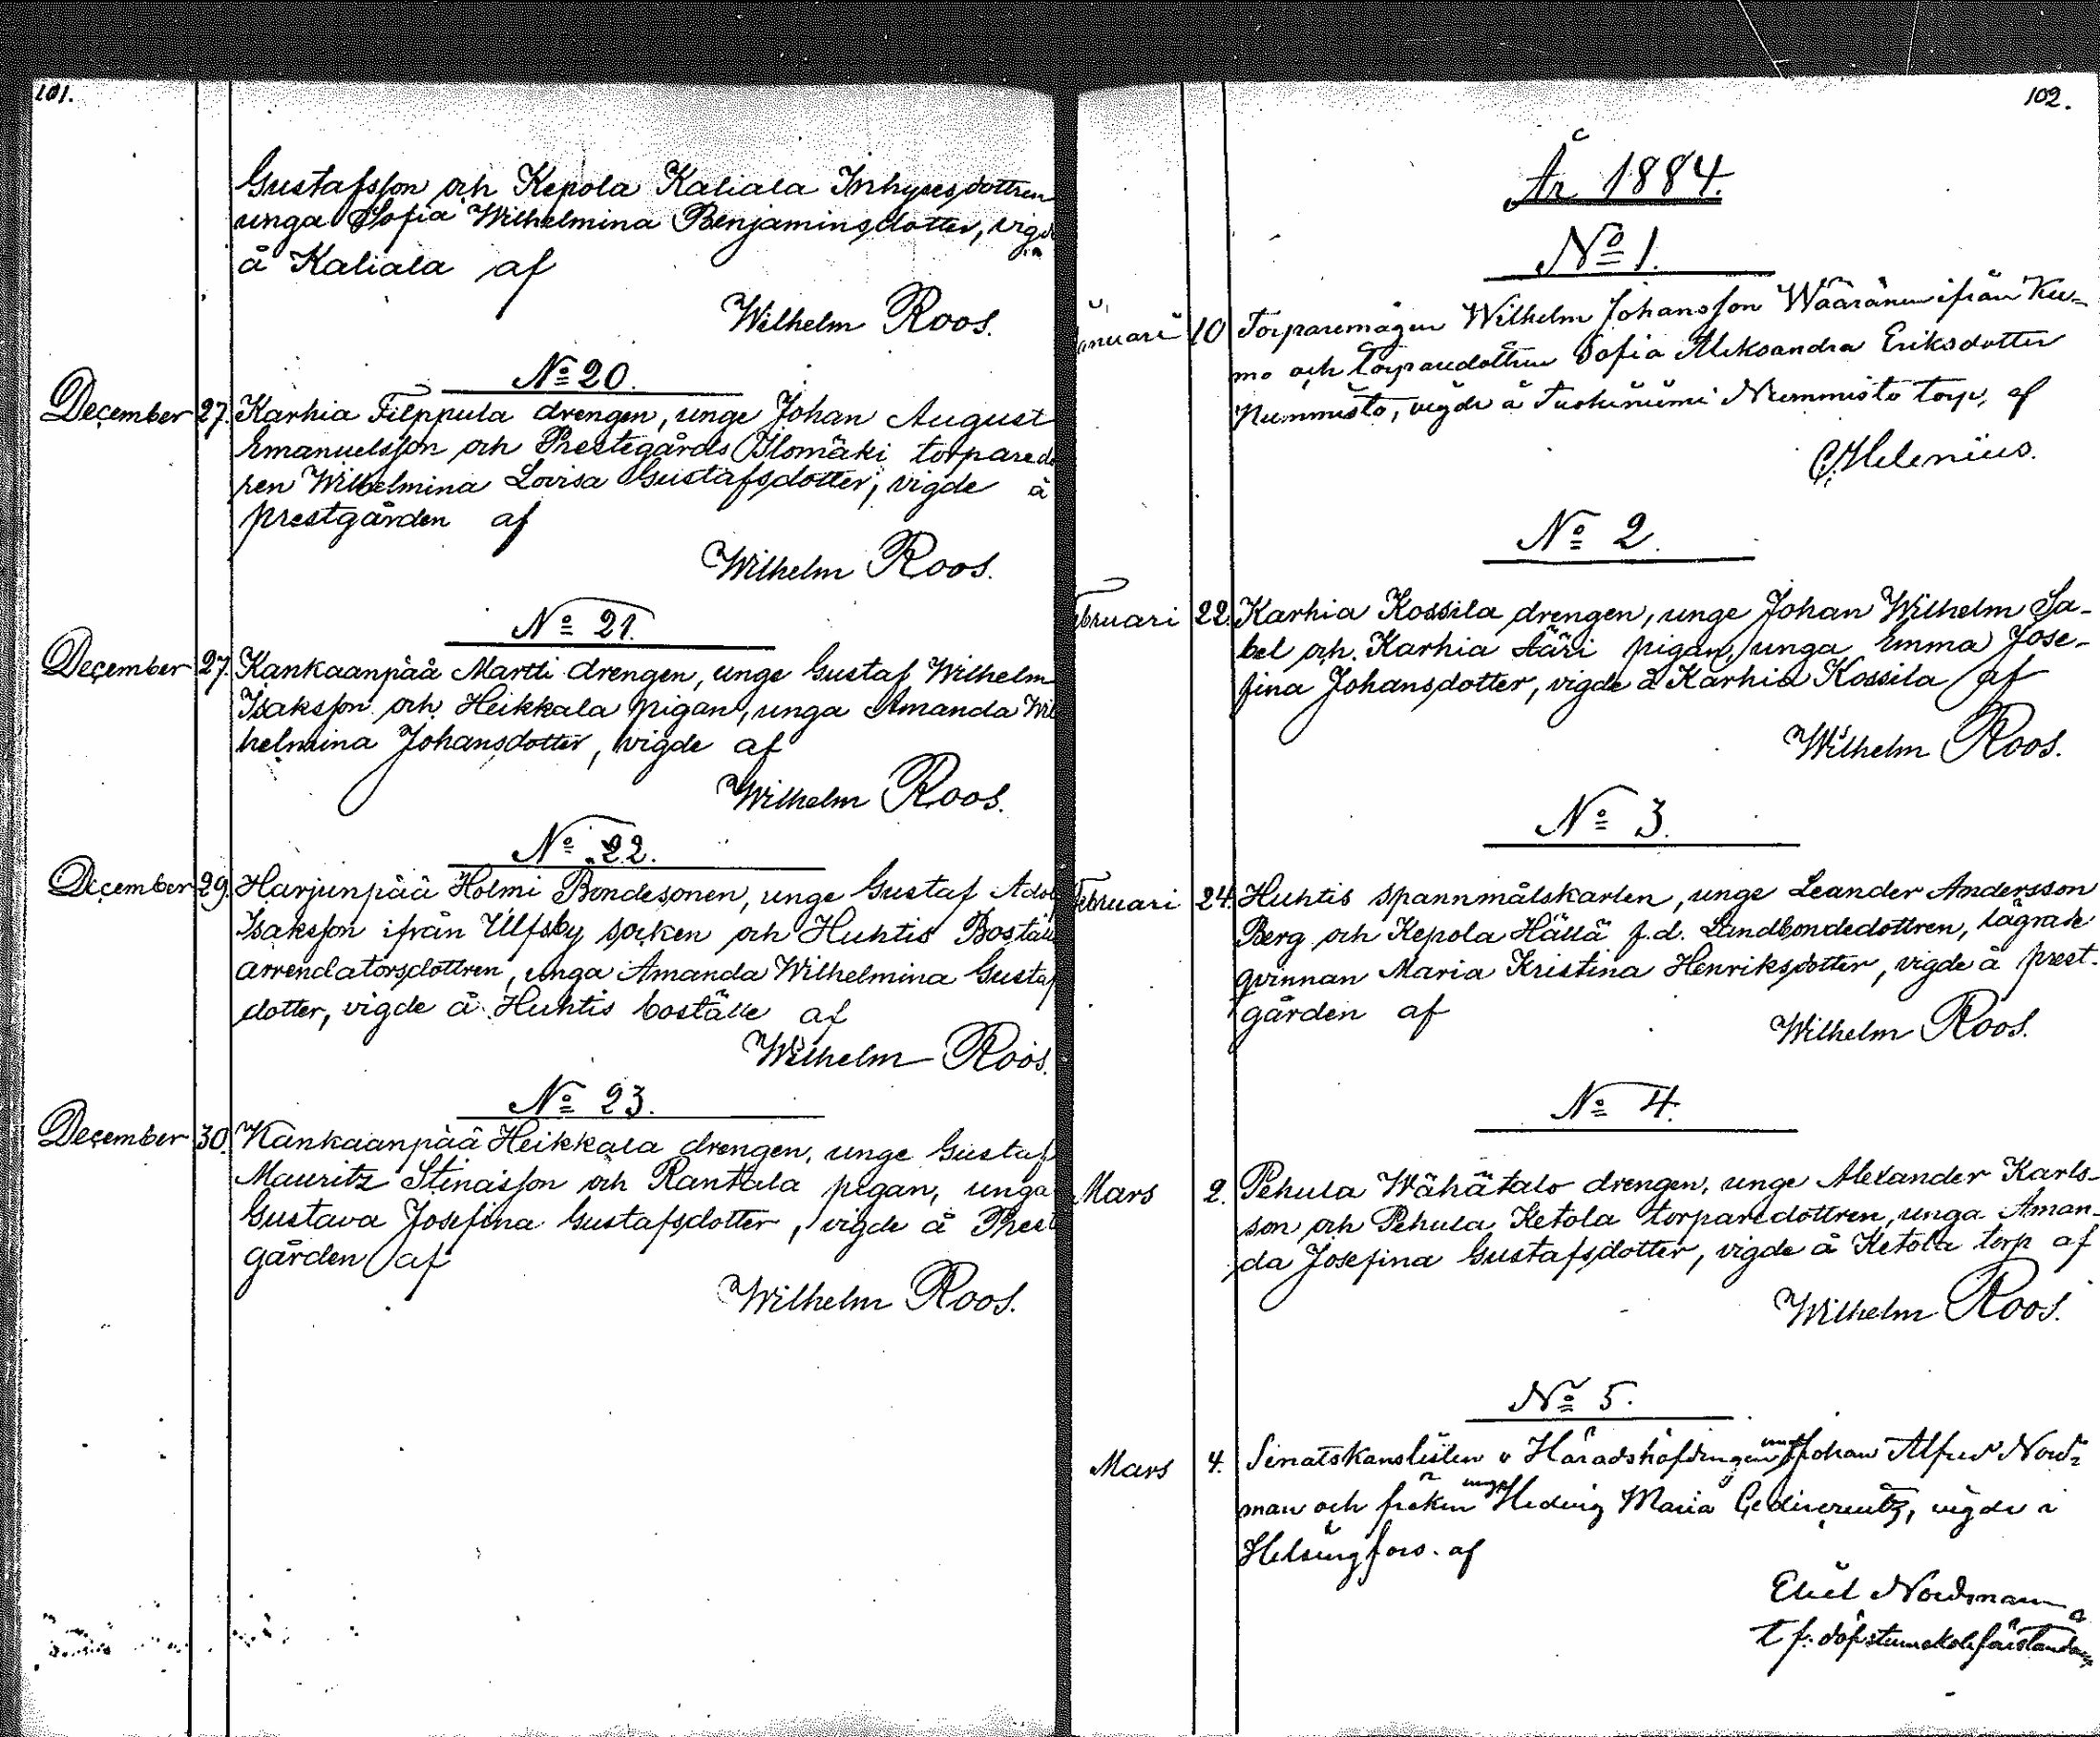 101.
Gustafsson och Kepola Kaliala Inhysesdottren
unga Sofia Wilhelmina Benjaminsdotter, vigde
å Kaliala af
Wilhelm Roos.
No 20.
December 27. Karhia Filppula drengen, unge Johan August
Emanuelsson och Prestegårds Ilomäki torpared
ren Wilhelmina Lovisa Gustafsdotter, vigde å
prestgården af
Wilhelm Roos.
No 21.
December 27. Kankaanpää Martti drengen, unge Gustaf Wilhelm
Isaksson och Heikkala pigan, unga Amanda Wil
helmina Johansdotter, vigde af
Wilhelm Roos.
No 22.
December 29. Harjunpää Holmi Bondesonen, unge Gustaf Adol
Isaksson ifrån Ulfsby socken och Huhtis Boställ
arrendatorsdottren, unga Amanda Wilhelmina Gustaf
dotter, vigde å Huhtis boställe af
Wilhelm Roos.
No 23.
December 30. Kankaanpää Heikkala drengen, unge Gustaf
Mauritz Stinasson och Rantala pigan, unga
Gustava Josefina Gustafsdotter, vigde å Prest
gården af
Wilhelm Roos.
102.
År 1884.
No 1.
anuari 10 Torparemågen Wilhelm Johansson Wääränen ifrån Ku-
mo och torparedottren Sofia Aleksandra Eriksdotter
Nummisto, vigde å Nummisto torp, af
C. Helenius.
No 2.
ebruari 22. Karhia Kossila drengen, unge Johan Wilhelm Sa-
bel och Karhia pigan, unga Emma Jose-
fina Johansdotter, vigde å Karhia Kossila af
Wilhelm Roos.
No 3.
Februari 24. Huhtis spannmålskarlen, unge Leander Andersson
Berg och Kepola Hällä f.d. Landbondedottren, lägrade
qvinnan Maria Kristina Henriksdotter, vigde å prest-
gården af
Wilhelm Roos.
No 4.
Mars 2. Pehula Wähätalo drengen, unge Alexander Karls-
son och Pehula Ketola torparedottren, unga Aman-
da Josefina Gustafsdotter, vigde å Ketola torp af
Wilhelm Roos.
No 5.
Mars 4. Senatskanslisten v Häradshöfdingen unge Johan Alfred Nord-
man och fröken unga Hedvig Maria Gedicreutz, vigde i
Helsingfors af
Eliel Nordman
t f. döfstumskoleföreståndare